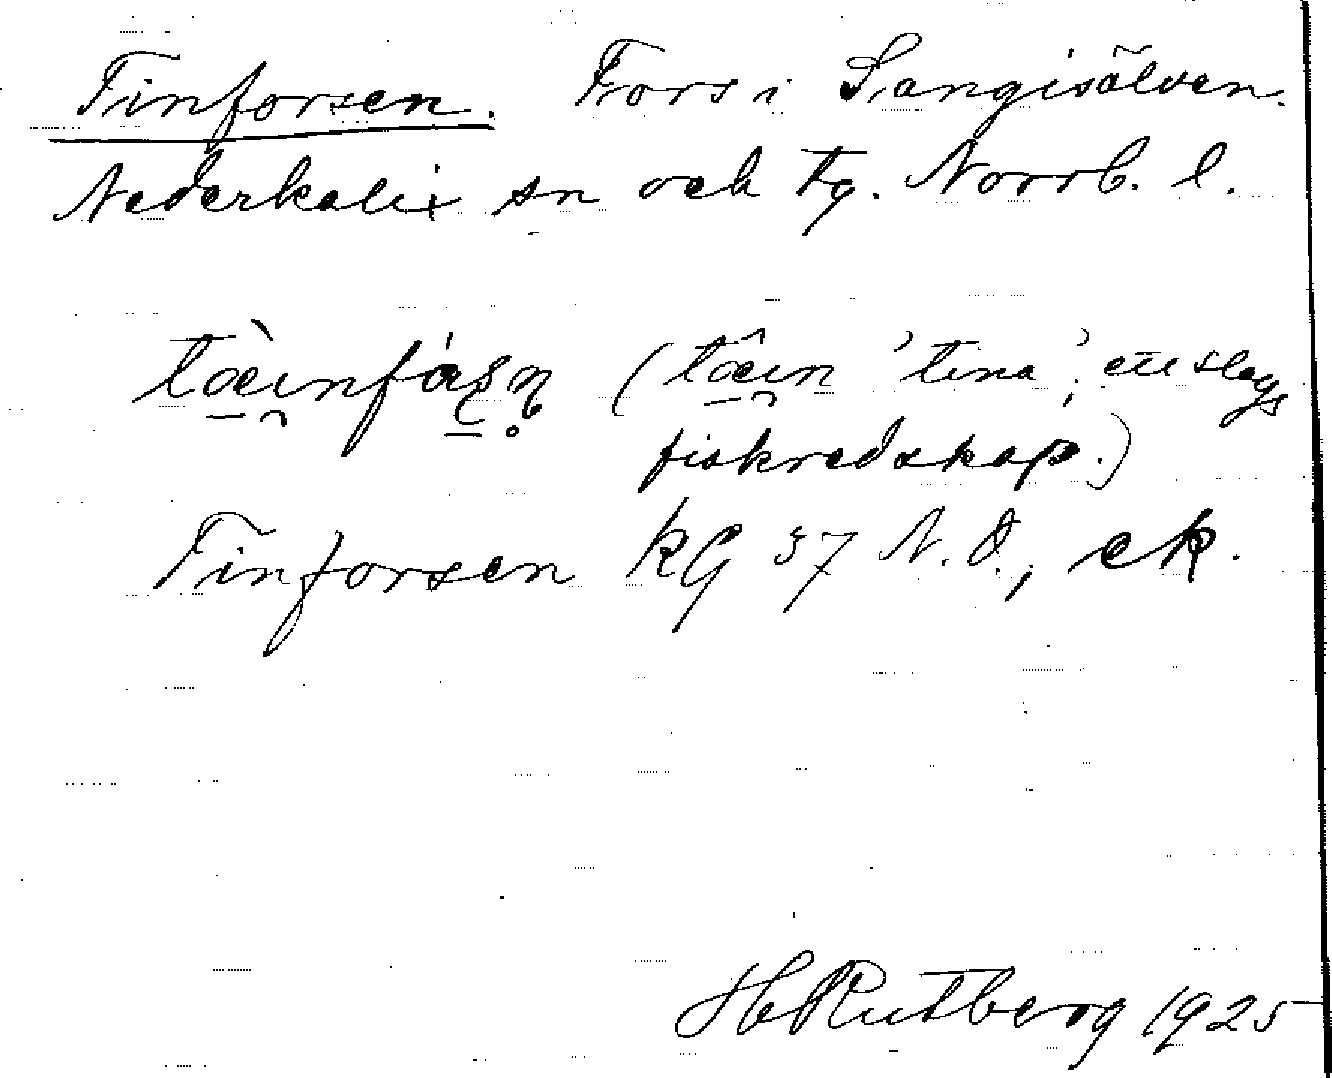 Tinforsen. Fors i Sangisälven.
Nederkalix sn och tg. Norrb. l.
(tôęın 'tina', ett slags
fiskredskap.)
Tinforsen KG 37 N.O., ek.
H Rutberg 1925